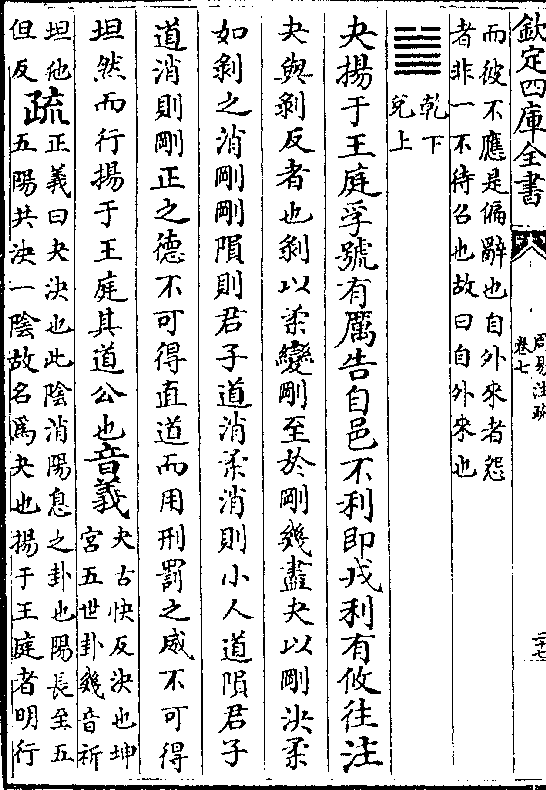 欽定四庫全書
周易注疏
卷七
二十七
而彼不應是偏辭也自外來者怨
者非一不待召也故曰自外來也
乾下
兌上
夬揚于王庭孚號有厲告自邑不利即戎利有攸往注
夬與剝反者也剝以柔變剛至於剛幾盡夬以剛決柔
如剝之消剛剛隕則君子道消柔消則小人道隕君子
道消則剛正之德不可得直道而用刑罰之威不可得
坦然而行揚于王庭其道公也音義
夬古快反決也坤
宮五世卦幾音祈
坦他
但反
疏
正義曰夬決也此陰消陽息之卦也陽長至五
五陽共決一陰故名爲夬也揚于王庭者明行